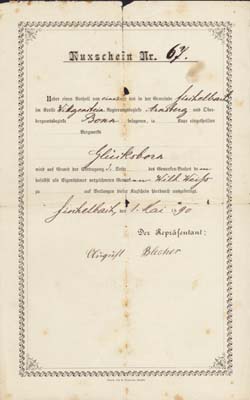 Kuxschein Nr. 67.
Ueber einen Antheil von an dem in der Gemeinde Fischelbach
im Kreise Wittgenstein, Regierungsbezirks Arnsberg und Ober-
bergamtsbezirks Bonn belegenen, in Kuxe eingetheilten
Bergwerke
Glücksborn
wird auf Grund der Eintragung des Gewerken-Buches
als Eigenthümer verzeichneten Wilh.
zu auf Verlangen dieser Kuxschein hierdurch ausgefertigt.
Fischelbach, 1. Mai 1890
Der Repräsentant:
August Blecher